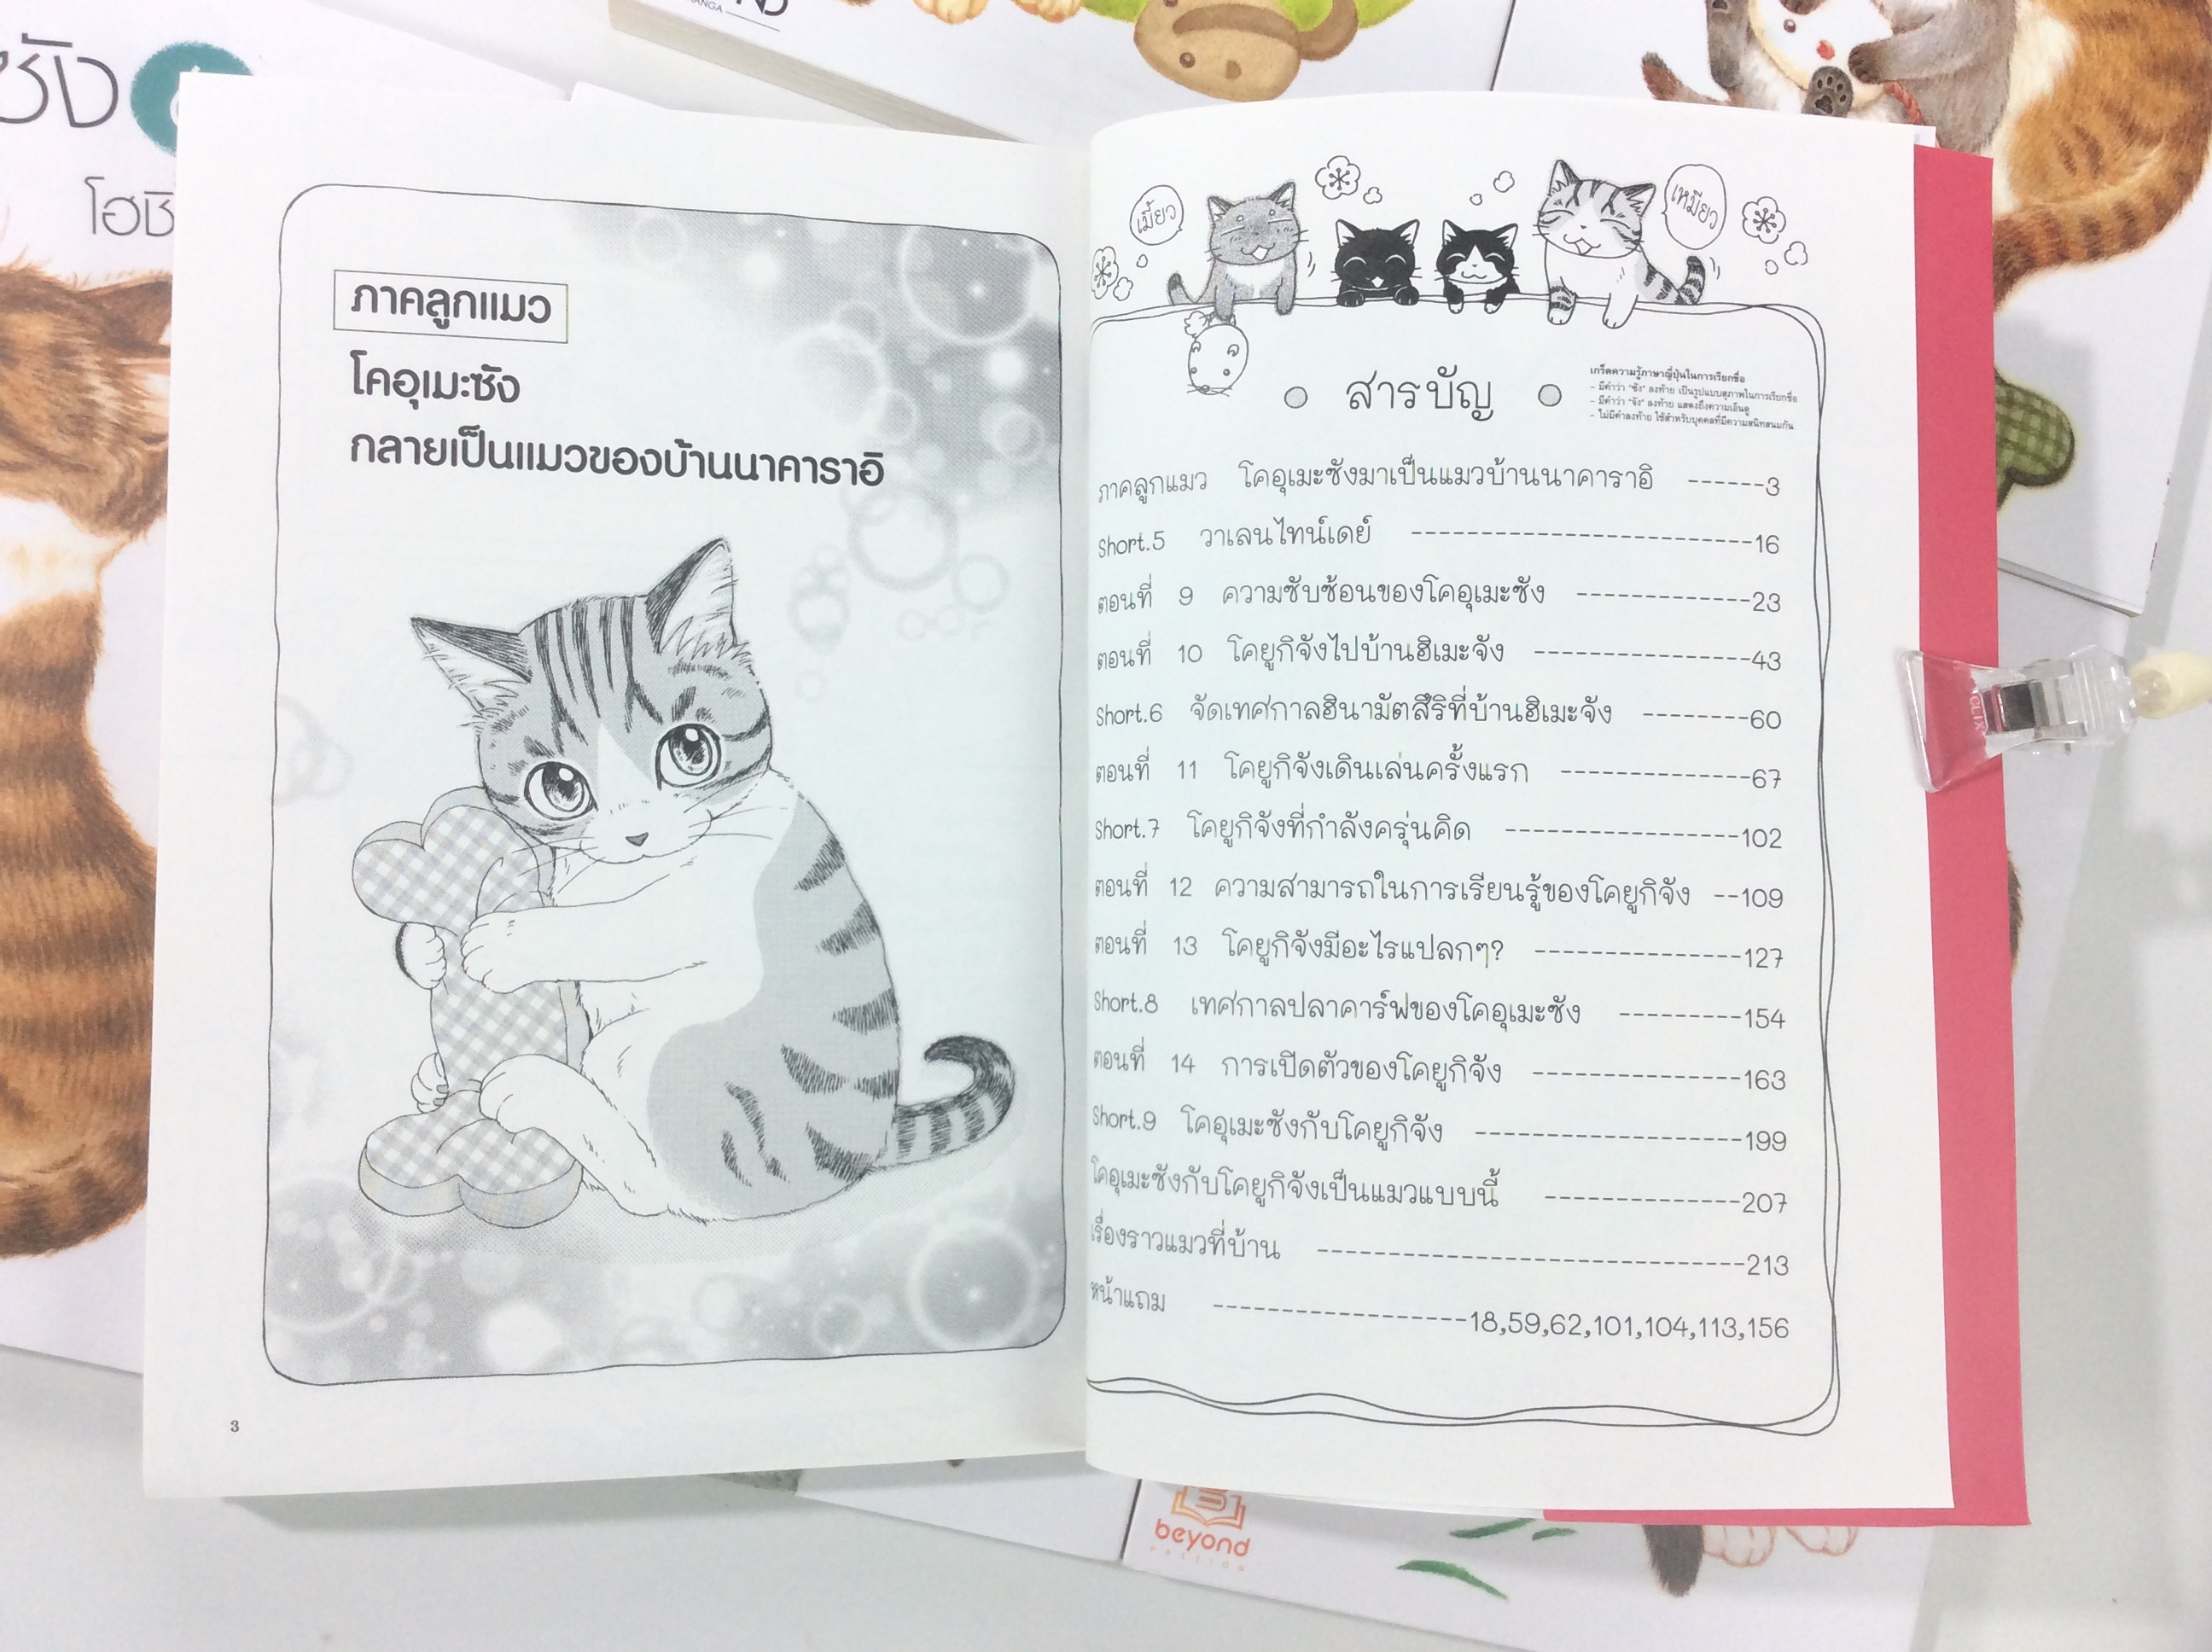 ซัง
โฮชิ
ภาคลูกแมว
โคอุเมะซัง
กลายเป็นแมวของบ้านนาคาราอิ
3
เมี้ยว
เหมียว
สารบัญ
เกร็ดความรู้ภาษาญี่ปุ่นในการเรียกชื่อ
- มีคำว่า "ซัง" ลงท้าย เป็นรูปแบบสุภาพในการเรียกชื่อ
- มีคำว่า "จัง" ลงท้าย แสดงถึงความเอ็นดู
- ไม่มีคำลงท้าย ใช้สำหรับบุคคลที่มีความสนิทสนมกัน
ภาคลูกแมว โคอุเมะซังมาเป็นแมวบ้านนาคาราอิ ------3
Short.5 วาเลนไทน์เดย์ ------------------------16
ตอนที่ 9 ความซับซ้อนของโคอุเมะซัง -------------23
ตอนที่ 10 โคยูกิจังไปบ้านฮิเมะจัง ----------------43
Short.6 จัดเทศกาลฮินามัตสึริที่บ้านฮิเมะจัง --------60
ตอนที่ 11 โคยูกิจังเดินเล่นครั้งแรก --------------67
Short.7 โคยูกิจังที่กำลังครุ่นคิด -----------------102
ตอนที่ 12 ความสามารถในการเรียนรู้ของโคยูกิจัง --109
ตอนที่ 13 โคยูกิจังมีอะไรแปลกๆ? ---------------127
Short.8 เทศกาลปลาคาร์ฟของโคอุเมะซัง ---------154
ตอนที่ 14 การเปิดตัวของโคยูกิจัง ---------------163
Short.9 โคอุเมะซังกับโคยูกิจัง -------------------199
โคอุเมะซังกับโคยูกิจังเป็นแมวแบบนี้ --------------207
เรื่องราวแมวที่บ้าน ------------------------------213
หน้าแถม ------------------18,59,62,101,104,113,156
CLIX
beyond